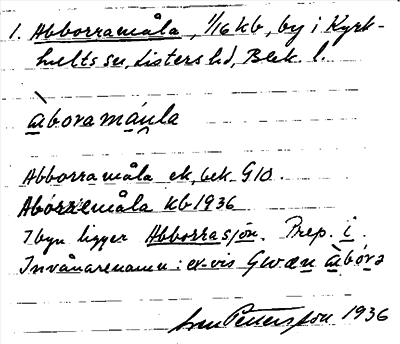 1. Abborramåla, 1/16 kb, by i Kyrk-
hults sn, Listers hd, Blek. l.
àboramáula
Abborramåla ek, bek G10.
Abórremåla kb 1936
I byn ligger Abborrasjön. Prep. i.
Invånarenamn: ex-vis Gwæn àbóra
Sven Pettersson 1936